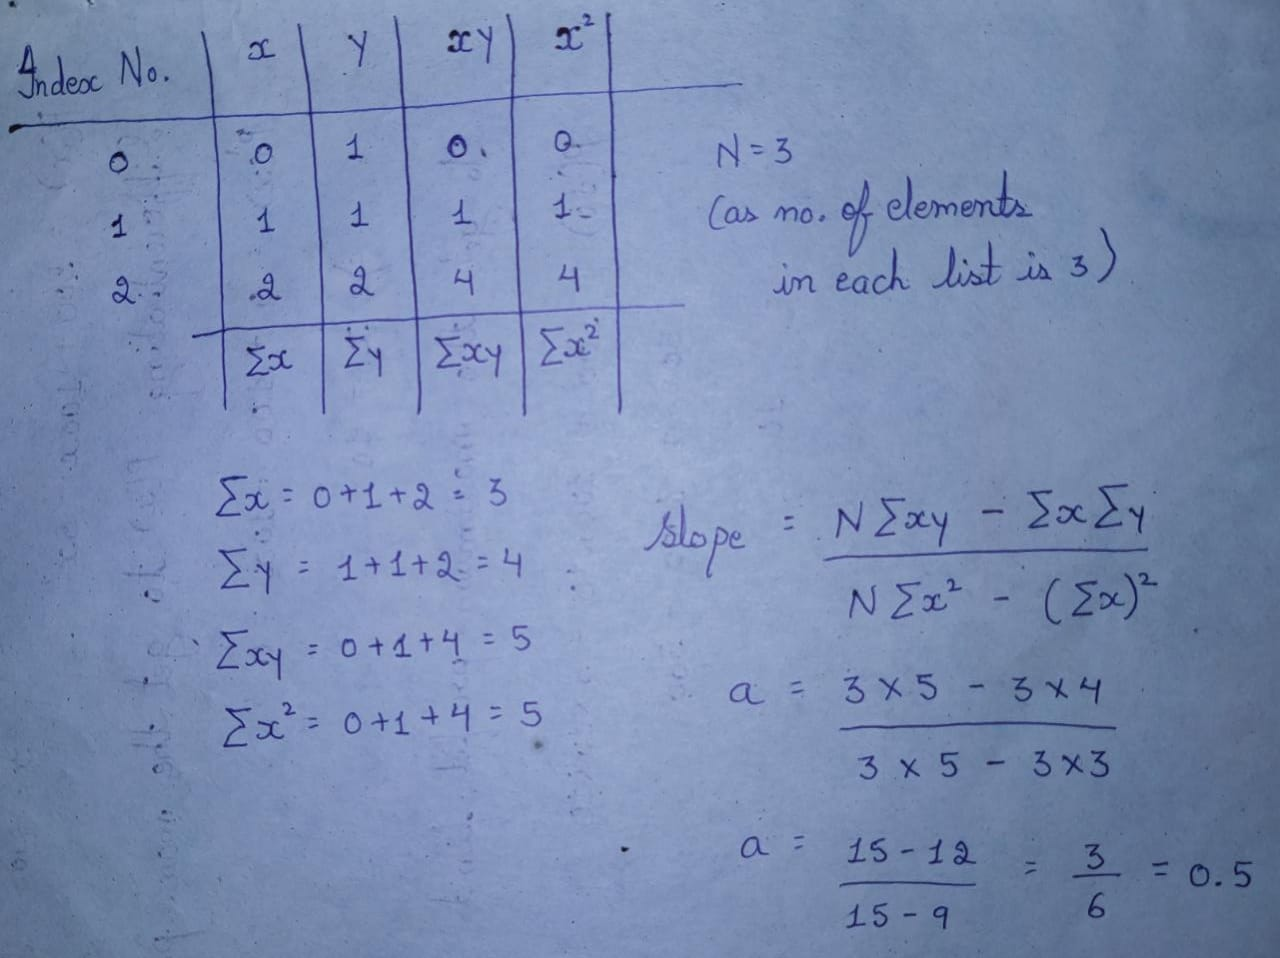 Index No. x y xy x²
0 0 1 0. 0.
1 1 1 1 1.
2. .2 2 4 4
Σx Σy Σxy Σx²
N = 3
(as no. of elements
in each list is 3)
Σx = 0+1+2 = 3
Σy = 1+1+2 = 4
Σxy = 0+1+4 = 5
Σx² = 0+1+4 = 5
slope = NΣxy - ΣxΣy
NΣx² - (Σx)²
a = 3×5 - 3×4
3×5 - 3×3
a = 15-12 = 3 = 0.5
15-9 6